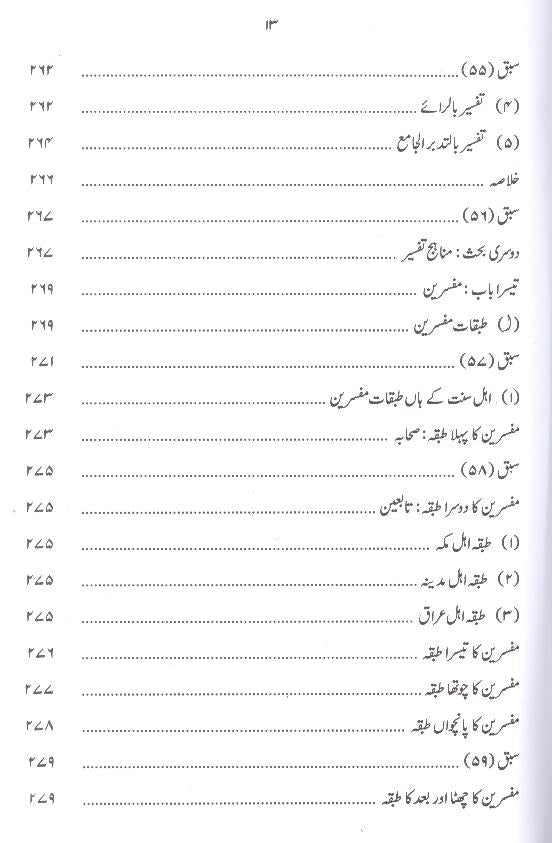 ۱۳
سبق (۵۵) ........ ۲۶۲
(۴) تفسیر بالرائے ........ ۲۶۲
(۵) تفسیر بالتدبر الجامع ........ ۲۶۴
خلاصہ ........ ۲۶۶
سبق (۵۶) ........ ۲۶۷
دوسری بحث: مناہج تفسیر ........ ۲۶۷
تیسرا باب: مفسرین ........ ۲۶۹
(ل) طبقات مفسرین ........ ۲۶۹
سبق (۵۷) ........ ۲۷۱
(۱) اہل سنت کے ہاں طبقات مفسرین ........ ۲۷۳
مفسرین کا پہلا طبقہ: صحابہ ........ ۲۷۳
سبق (۵۸) ........ ۲۷۵
مفسرین کا دوسرا طبقہ: تابعین ........ ۲۷۵
(۱) طبقہ اہل مکہ ........ ۲۷۵
(۲) طبقہ اہل مدینہ ........ ۲۷۵
(۳) طبقہ اہل عراق ........ ۲۷۵
مفسرین کا تیسرا طبقہ ........ ۲۷۶
مفسرین کا چوتھا طبقہ ........ ۲۷۷
مفسرین کا پانچواں طبقہ ........ ۲۷۸
سبق (۵۹) ........ ۲۷۹
مفسرین کا چھٹا اور بعد کا طبقہ ........ ۲۷۹